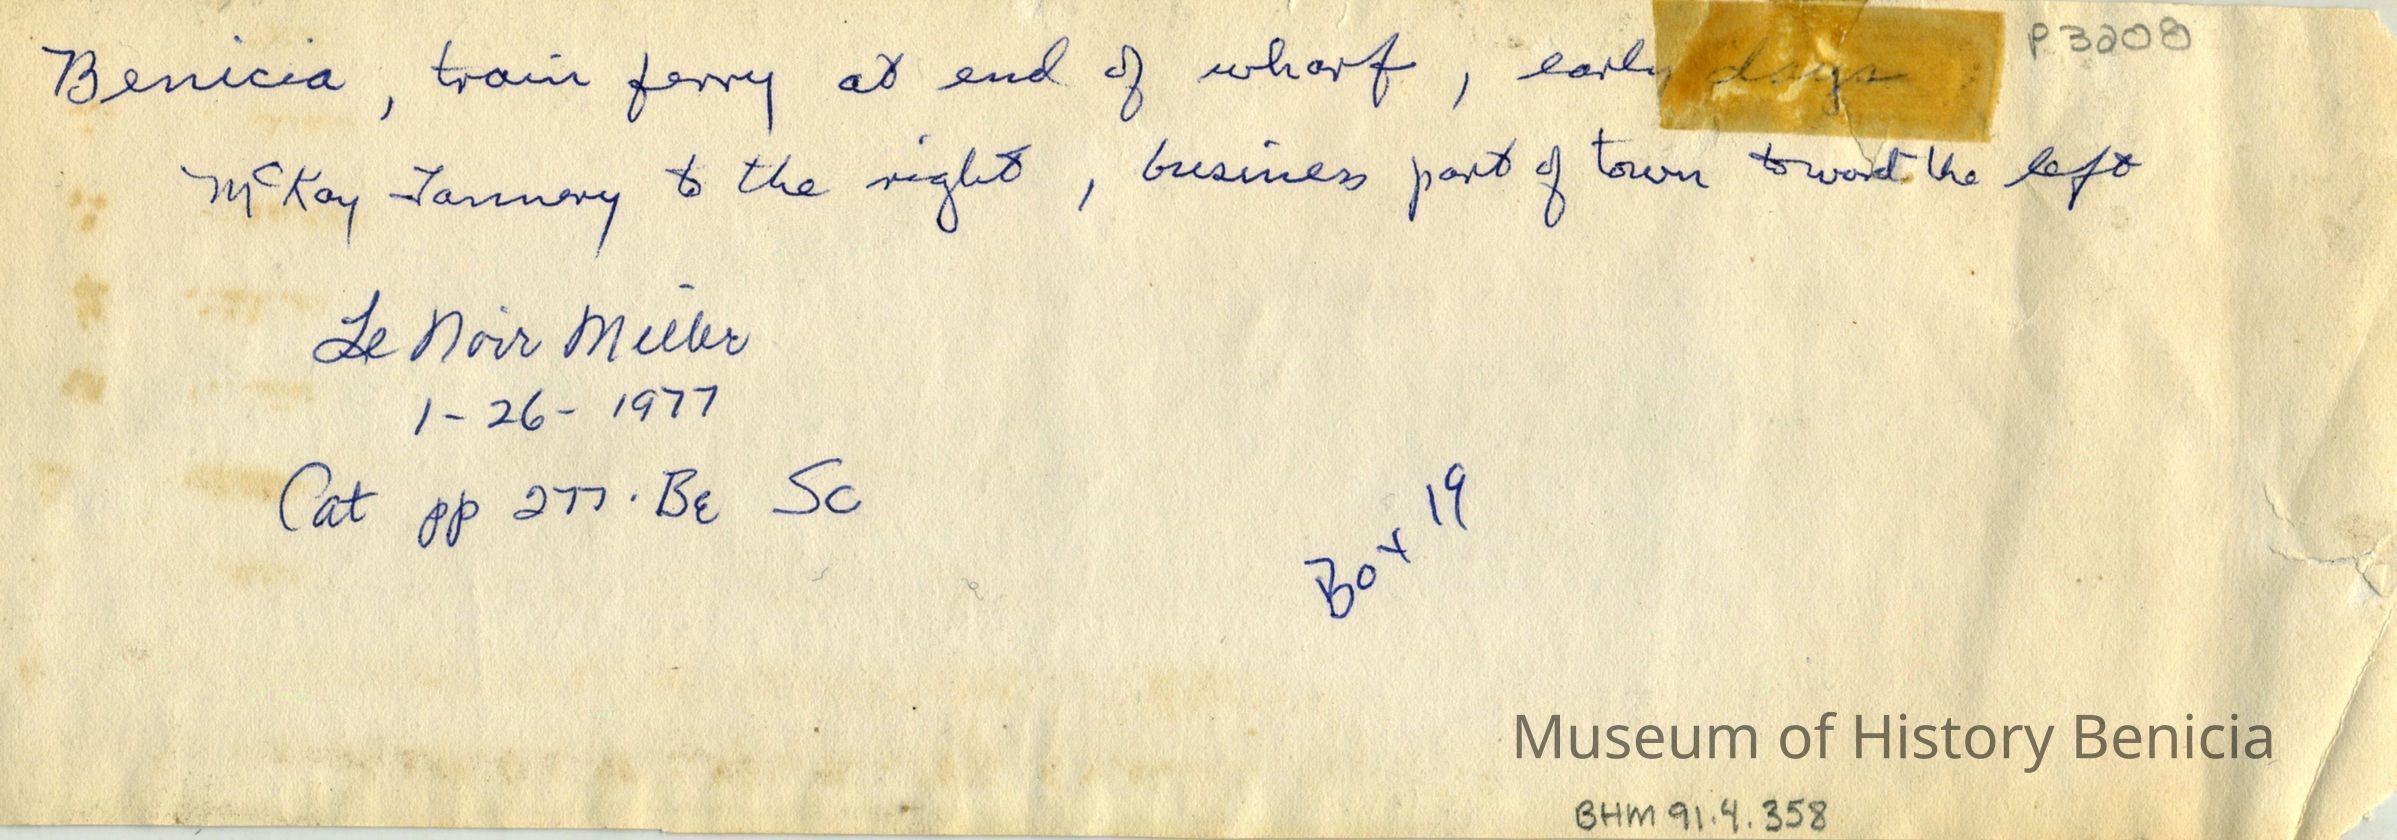 Benicia, train ferry at end of wharf, early days
P3208
McKay Tannery to the right, business part of town toward the left
Le Noir Miller
1-26-1977
Cat pp 277. BE Sc
Box 19
Museum of History Benicia
BHM 91.4.358